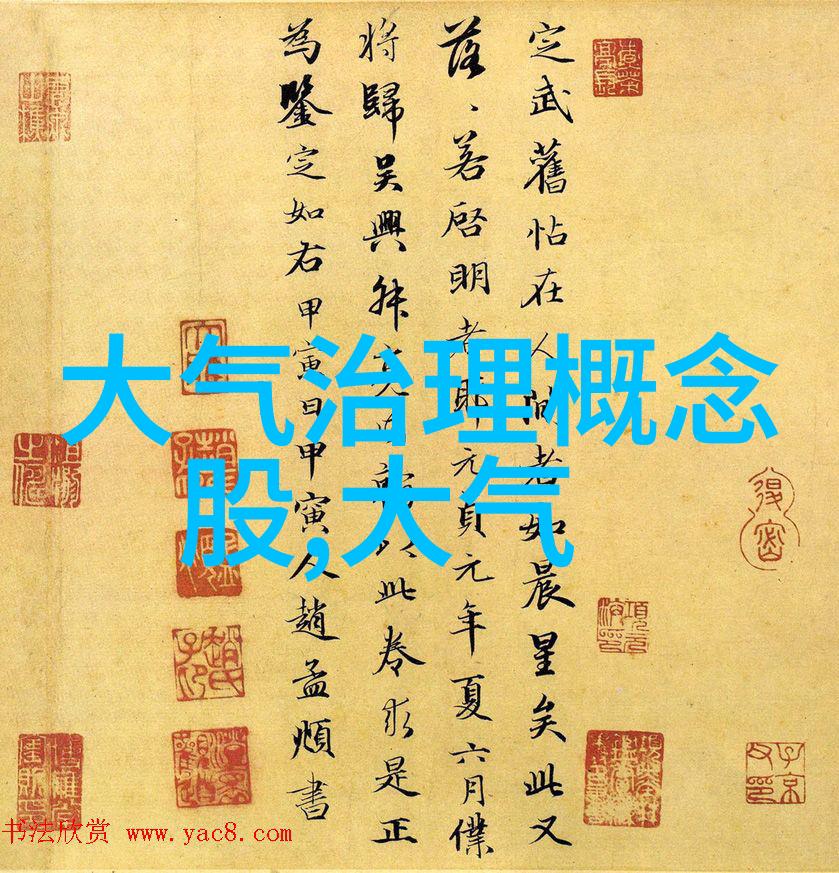 定武舊帖在人間者如晨星矣此又
落、若啓明者耶元貞元年夏六月僕
将歸吳興叔亮内翰以此卷求是正
為鑒定如右甲寅日甲寅人趙孟頫書
大气治理概念
股,大气
书法欣赏 www.yac8.com